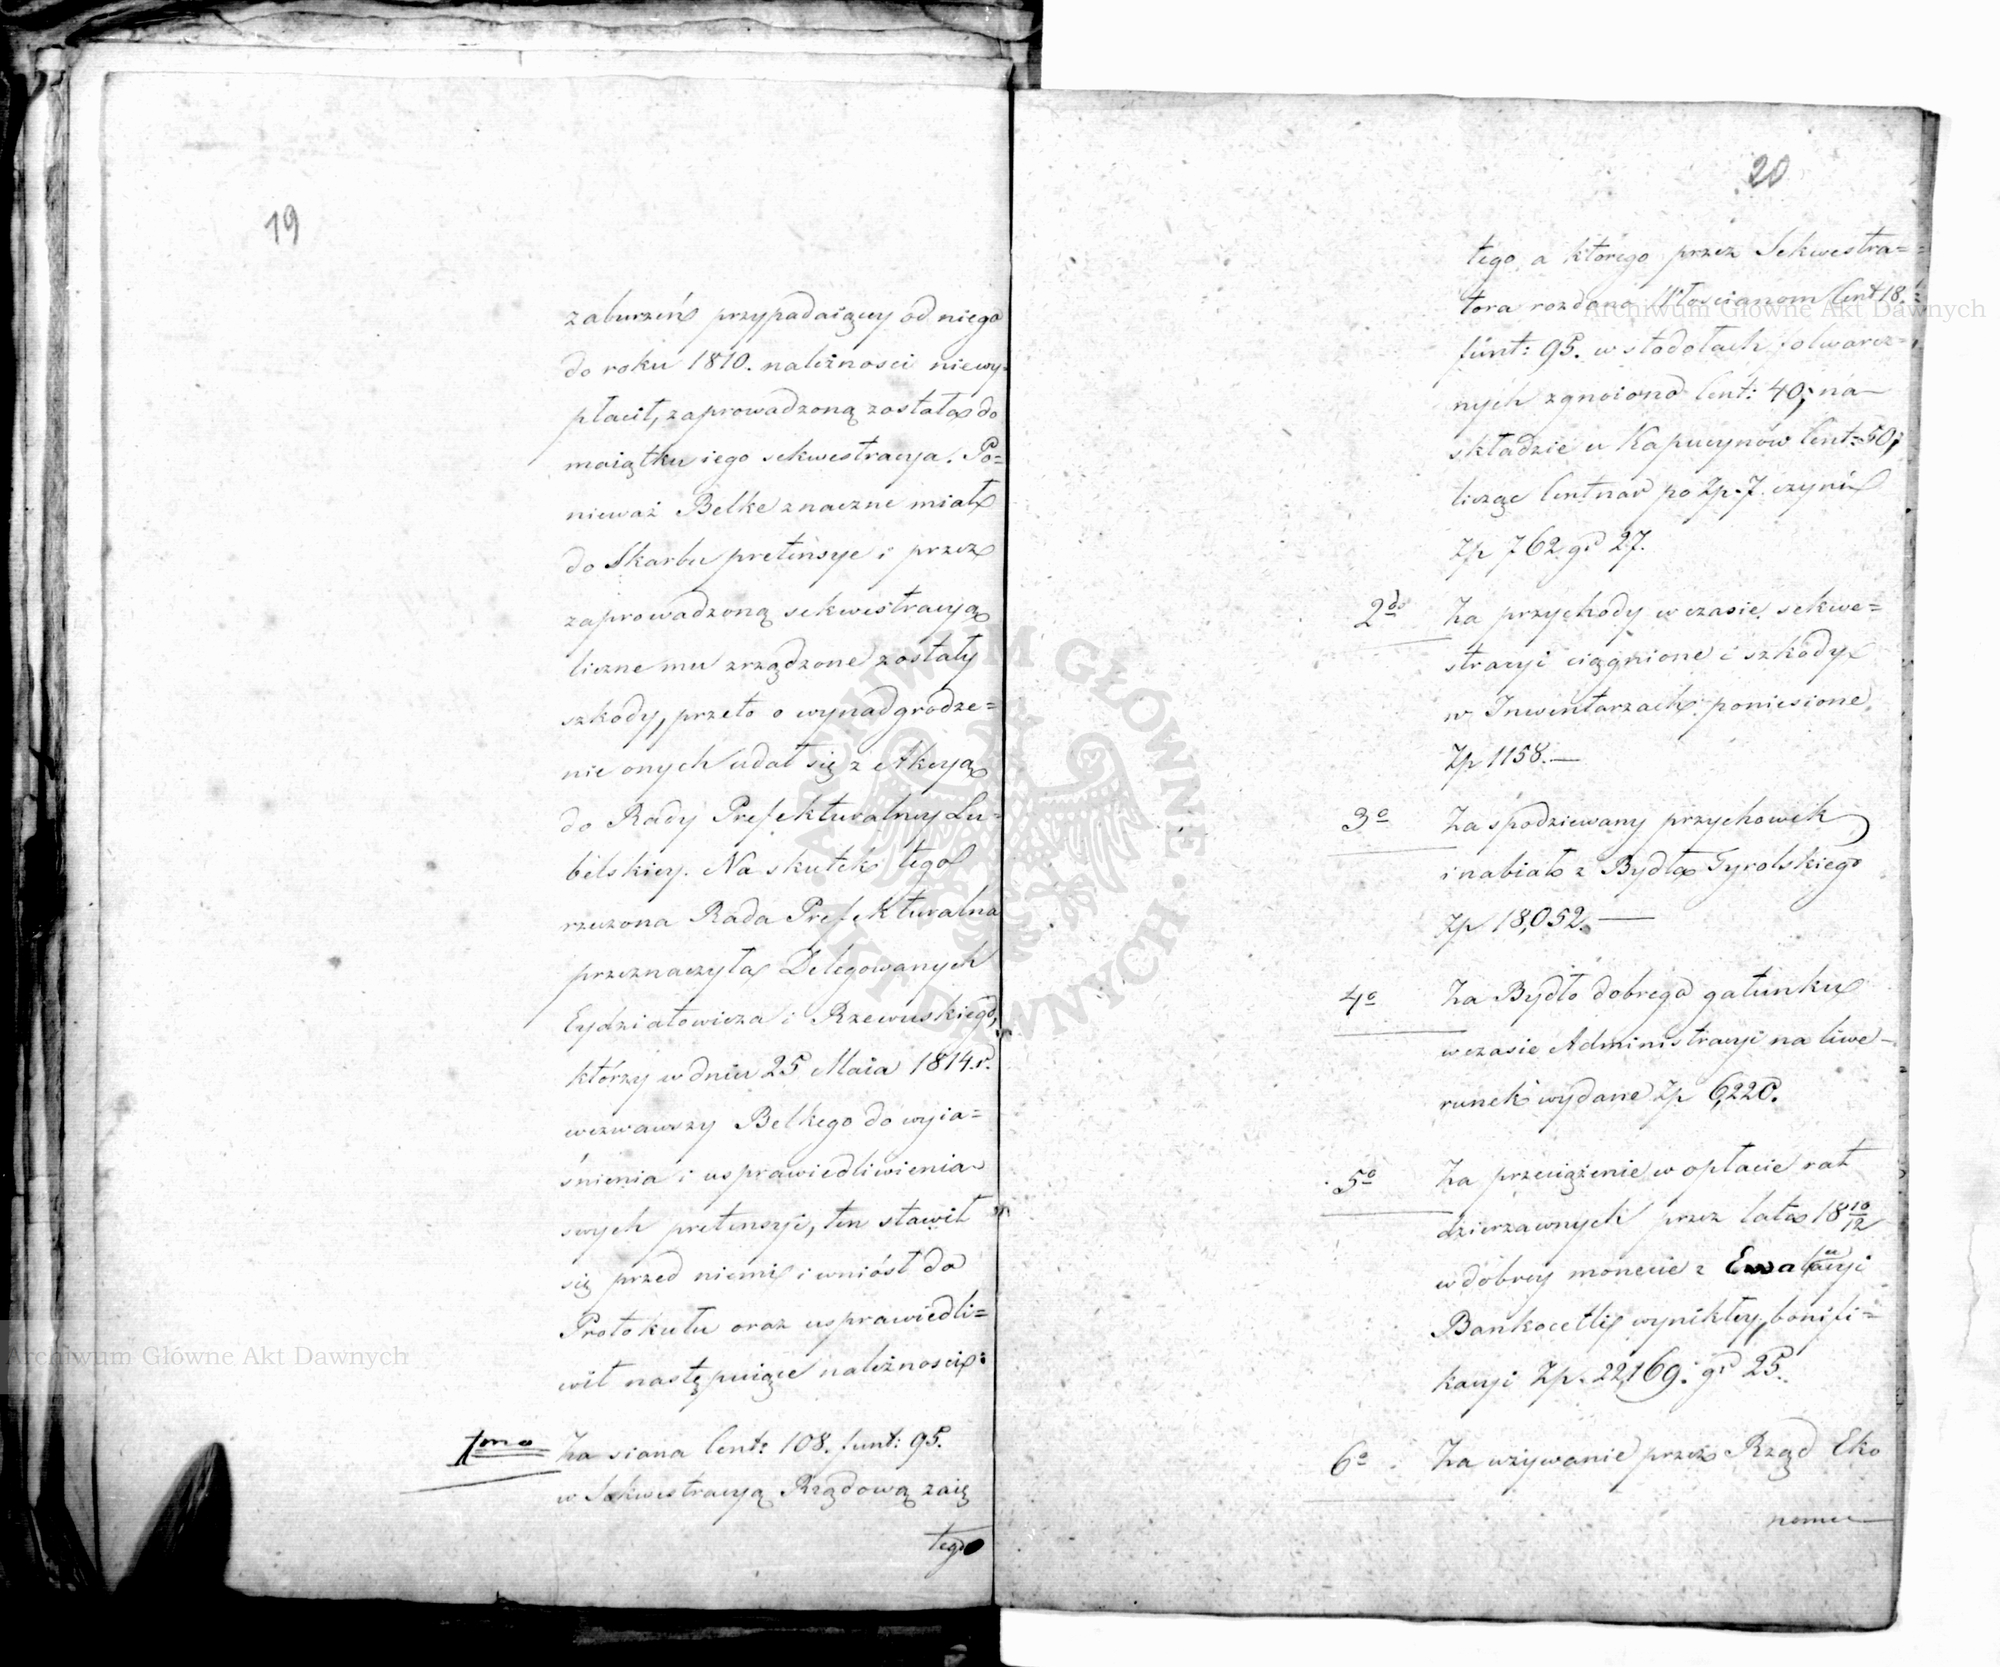 19
zaburzeń przypadaiący od niego
do roku 1810. należnosci niewy-
płacił, zaprowadzoną została do
maiątku iego sekwestracya. Po=
nieważ Belke znaczne miał
do Skarbu pretensye i przez
zaprowadzoną sekwestracyą
liczne mu zrządzone zostały
szkody, przeto o wynadgrodze=
nie onych udał się z Akcyą
do Rady Prefekturalney Lu=
belskiey. Na skutek tego
rzeczona Rada Prefekturalna
przeznaczyła Delegowanych
Eydziatowicza i Rzewuskiego,
którzy w dniu 25 Maia 1814 r.
wezwawszy Belkego do wyia=
śnienia i usprawiedliwienia
swych pretensyi, ten stawił
się przed niemi i wniósł do
Protokułu oraz usprawiedli=
wił następuiące należnosci:
1mo Za siana Cent: 108. funt: 95.
w Sekwestracyą Rządową zaię
tego
20
tego, a którego przez Sekwestra=
tora rozdano Włoscianom Cent 18.
funt: 95. w stodołach folwarcz=
nych zgnoiono Cent: 40, na
składzie u Kapucynów Cent: 50,
licząc Centnar po Zp. 7. czyni
Zp 762 gr 27.
2do Za przychody w czasie sekwe=
stracyi ciągnione i szkody
w Inwentarzach poniesione
Zp 1158.—
3o Za spodziewany przychowek
i nabiał z Bydła Tyrolskiego
Zp 18,052.—
4o Za Bydło dobrego gatunku
w czasie Administracyi na liwe-
runek wydane Zp 6,220.
5o Za przeciążenie w opłacie rat
dzierzawnych przez lata 18 10/12
w dobrey monecie z Ewaluacyi
Bankocetli wynikłey, bonifi=
kacyi Zp. 22,169. gr 25.
6o Za używanie przez Rząd Eko
nomii
Archiwum Główne Akt Dawnych
Archiwum Główne Akt Dawnych
ARCHIWUM GŁÓWNE AKT DAWNYCH